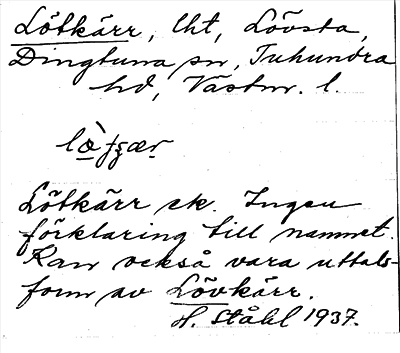 Lötkärr, lht, Lövsta,
Dingtuna sn, Tuhundra
hd, Västm. l.
Lötkärr ek. Ingen
förklaring till namnet.
Kan också vara uttals-
form av Lövkärr.
H. Ståhl 1937.